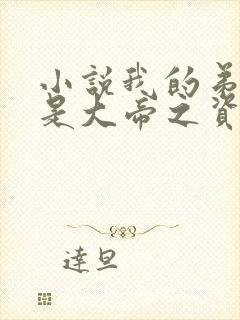 小說我的弟
是大帝之資
達旦